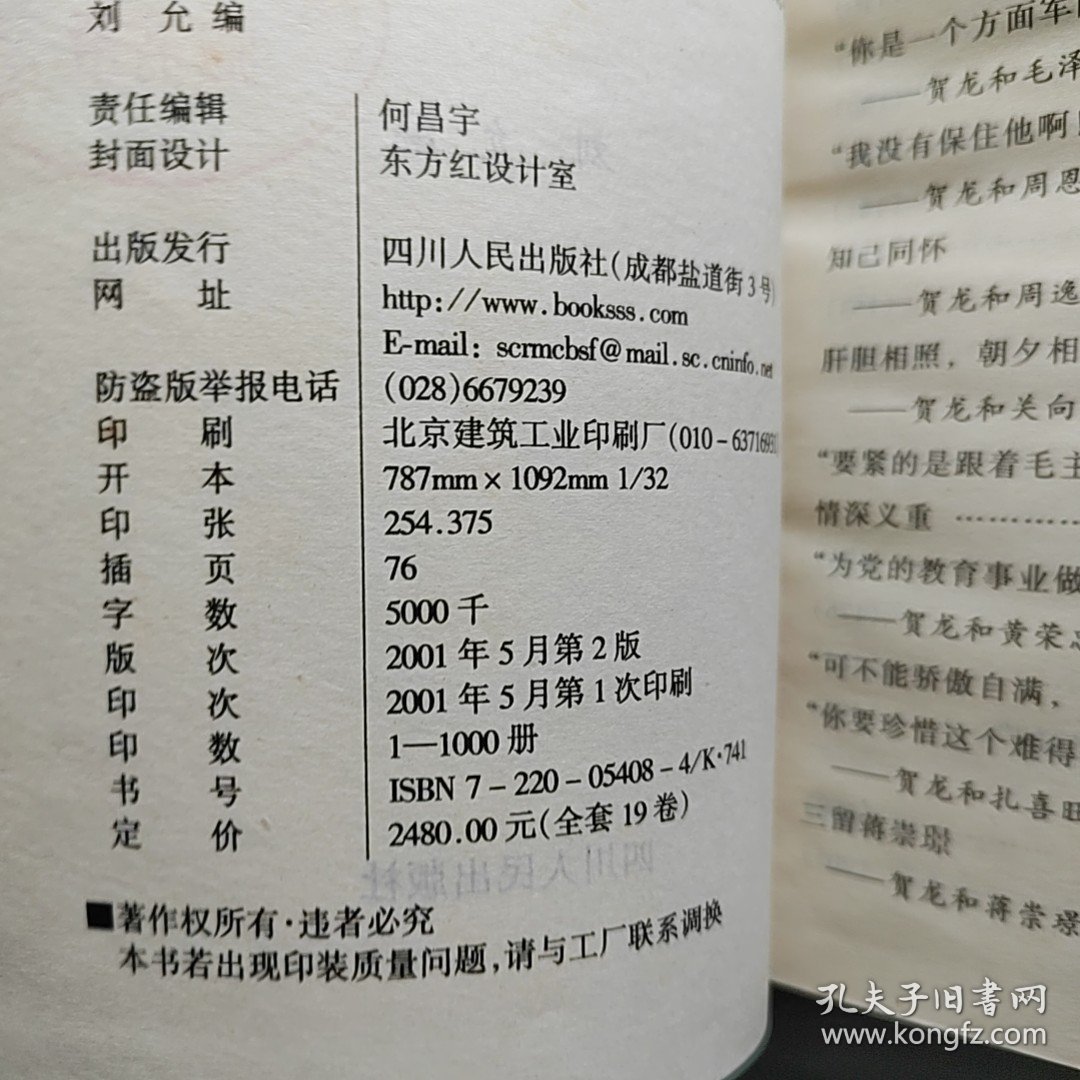 刘 允 编
责任编辑 何昌宇
封面设计 东方红设计室
出版发行 四川人民出版社(成都盐道街3号)
网 址 http://www.booksss.com
E-mail: scrmcbsf@mail.sc.cninfo.net
防盗版举报电话 (028)6679239
印 刷 北京建筑工业印刷厂(010-6371693
开 本 787mm×1092mm 1/32
印 张 254.375
插 页 76
字 数 5000千
版 次 2001年5月第2版
印 次 2001年5月第1次印刷
印 数 1—1000册
书 号 ISBN 7-220-05408-4/K·741
定 价 2480.00元(全套19卷)
四川人民出版社
■著作权所有·违者必究
本书若出现印装质量问题,请与工厂联系调换
“你是一个方面军
——贺龙和毛泽
“我没有保住他啊
——贺龙和周恩
知己同怀
——贺龙和周逸
肝胆相照，朝夕相
——贺龙和关向
“要紧的是跟着毛主
情深义重 …………
“为党的教育事业做
——贺龙和黄荣
“可不能骄傲自满，
“你要珍惜这个难得
——贺龙和扎喜旺
三留蒋崇璟
——贺龙和蒋崇璟
孔夫子旧書网
www.kongfz.com